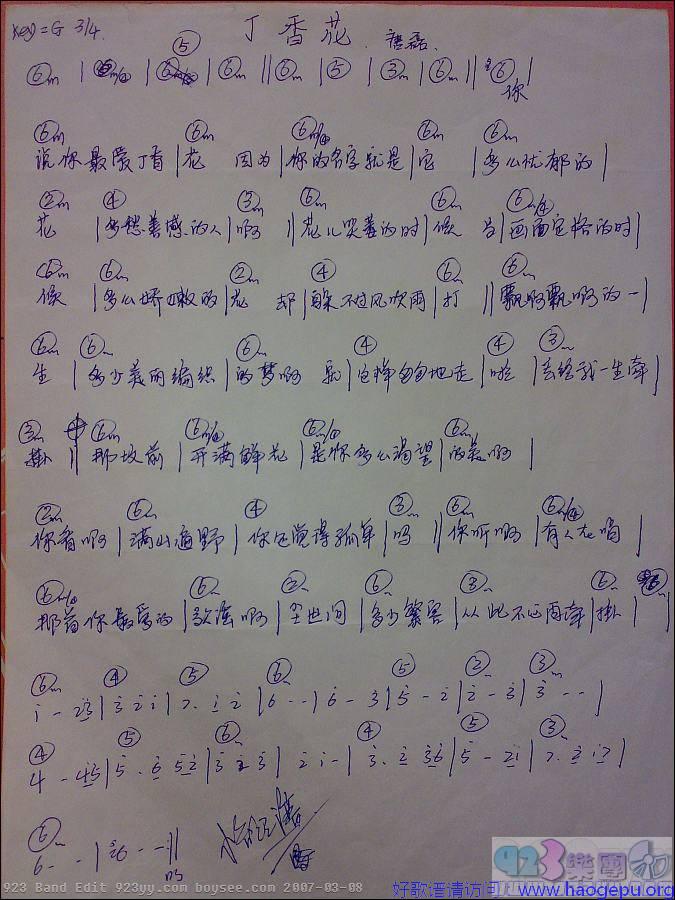 Key=G 3/4. 丁香花 . 唐磊.
⑥m | ⑥m/④ | ⑤ | ⑥m || ⑥m | ⑤ | ③m | ⑥m || ⑥ |
你
⑥m ②m ⑥m/④ ⑥m ⑥m
说你最爱丁香 | 花 因为 | 你的名字就是 | 它 | 多么忧郁的 |
②m ④ ③m ⑥m ⑥m ⑥m/④
花 | 多愁善感的人 | 啊 || 花儿哭萎的时 | 候 当 | 画面定格的时 |
⑥m ⑥m ②m ④ ⑥m ⑥m
候 | 多么娇嫩的 | 花 却 | 躲不过风吹雨 | 打 || 飘啊飘啊的一 |
⑥m ⑥m ⑥m ④ ④ ③m
生 | 多少美丽编织 | 的梦啊 就 | 这样匆匆地走 | 啦 | 去给我一生牵 |
③m ⑥m ⑥m/④ ⑥m/④ ⑥m
挂 || 那坟前 | 开满鲜花 | 是你多么渴望 | 的美啊 |
②m ⑥m ④ ③m ⑥m ⑥m/④
你看啊 | 满山遍野 | 你还觉得孤单 | 吗 || 你听啊 | 有人在唱 |
⑥m/④ ⑥m ②m ⑥m ③m ⑥m
那首你最爱的 | 歌谣啊 | 尘世间 | 多少繁累 | 从此不必再牵 | 挂 |
⑥m ④ ⑤ ⑥m ⑤ ②m ③m
i - 23 | 3 2 i | 7. i 2 | 6 - - | 6 - 3 | 5 - 2 | 2 - 3 | 3 - - |
④ ⑤ ⑥m ④ ⑤ ③m
4 - 45 | 5. 6 52 | 3 2 3 | 2 i - | 3. 2 36 | 5 - 2i | 7. 2 i7 |
⑥m
6 - - | 26 - - ||
吗
923 Band Edit 923yy.com boysee.com 2007-03-08
923樂團
好歌谱请访问 www.haogepu.org